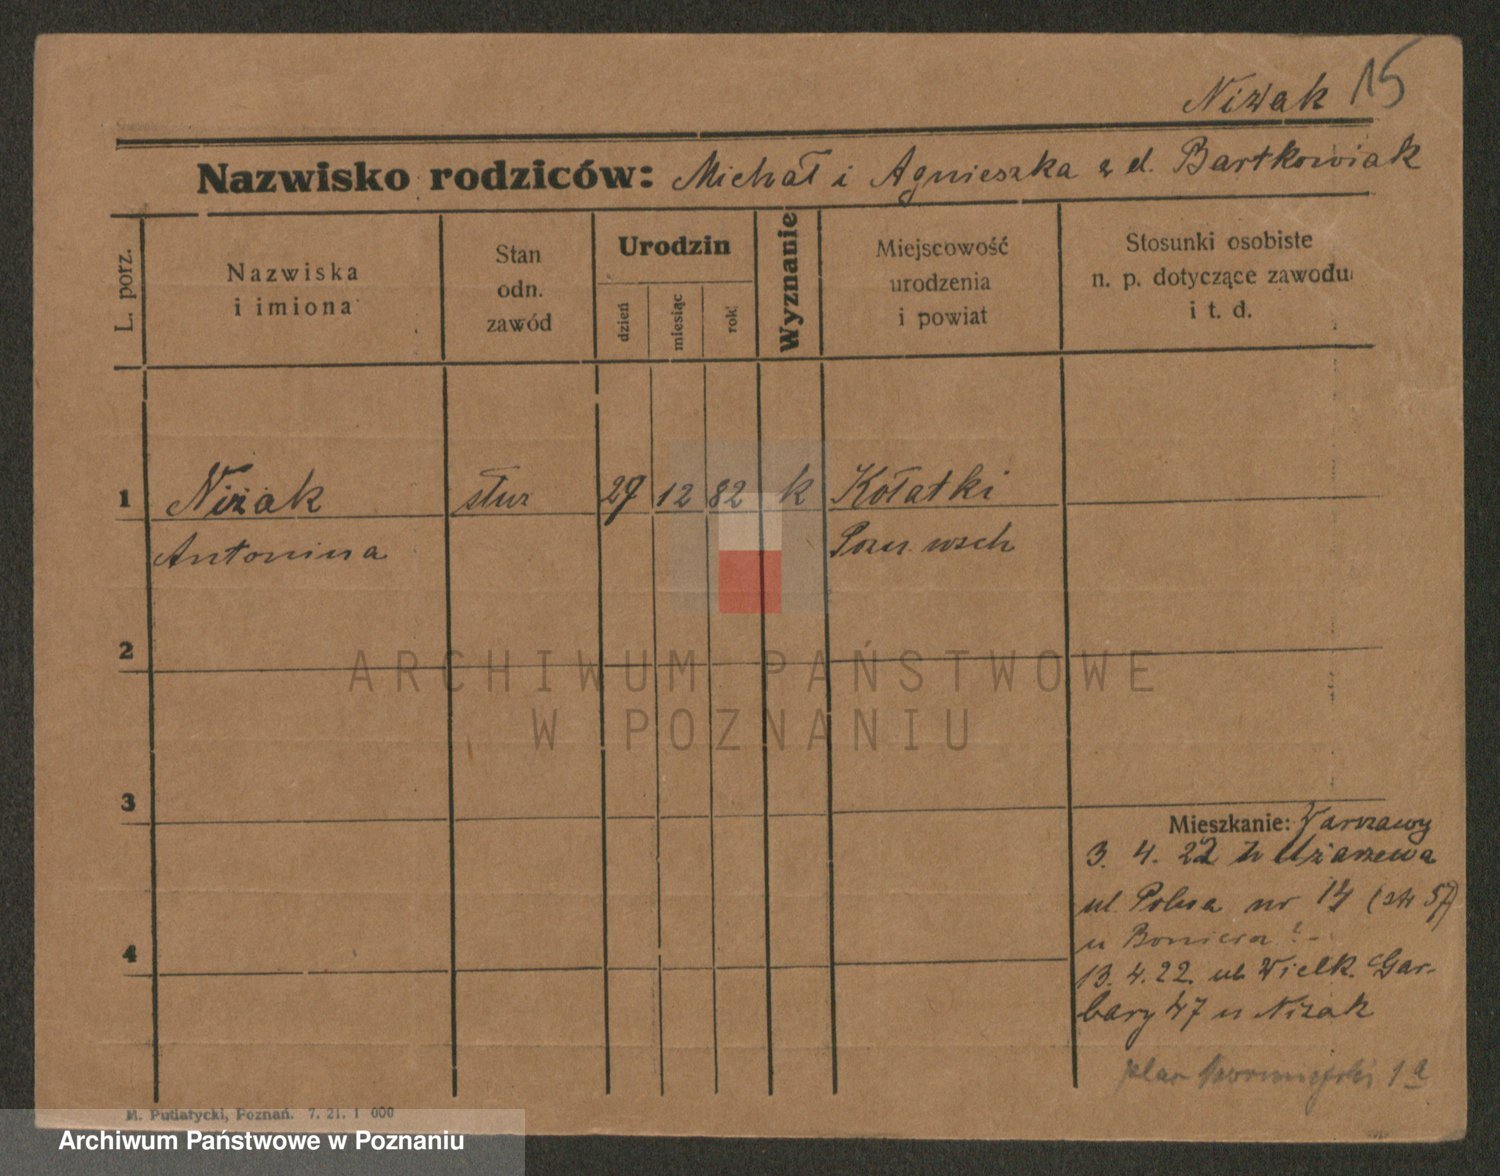 Niżak 15
Nazwisko rodziców: Michał i Agnieszka z d. Bartkowiak
L. porz.
Nazwiska
i imiona
Stan
odn.
zawód
Urodzin
dzień
miesiąc
rok
Wyznanie
Miejscowość
urodzenia
i powiat
Stosunki osobiste
n. p. dotyczące zawodu
i t. d.
1 Niżak służ 29 12 82 k Kołatki
Antonina Pozn wsch
2
ARCHIWUM PAŃSTWOWE
W POZNANIU
3
Mieszkanie: Warszawy
3. 4. 22 z Użarzewa
ul Polna nr 14 (str 57)
4
u
13. 4. 22. ul. Wielk. Gar-
bary 47 u Nizak
plac 1a
M. Putiatycki, Poznań. 7. 21. 1 000
Archiwum Państwowe w Poznaniu